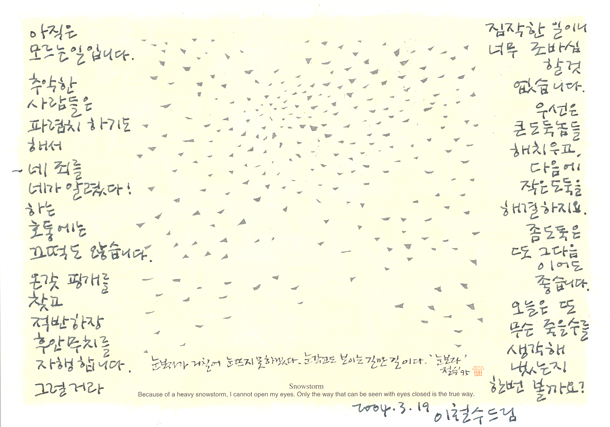 아직은
모르는 일입니다.
추악한
사람들은
파렴치 하기도
해서
네 죄를
네가 알렸다!
하는
호통에는
끄떡도 않습니다.
온갖 핑개를
찾고
적반하장
후안무치를
자행합니다.
그럴거라
짐작한 일이니
너무 조바심
할것
없습니다.
우선은
큰도둑놈들
해치우고,
다음에
작은도둑을
해결하지요.
좀도둑은
또 그다음
이어도
좋습니다.
오늘은 또
무슨 죽을수를
생각해
냈는지
한번 볼까요?
눈보라가 거칠어 눈뜨지 못하겠다. 눈감고도 보이는 길만 길이다. '눈보라'
철수 '95
Snowstorm
Because of a heavy snowstorm, I cannot open my eyes. Only the way that can be seen with eyes closed is the true way.
2004.3.19 이철수드림